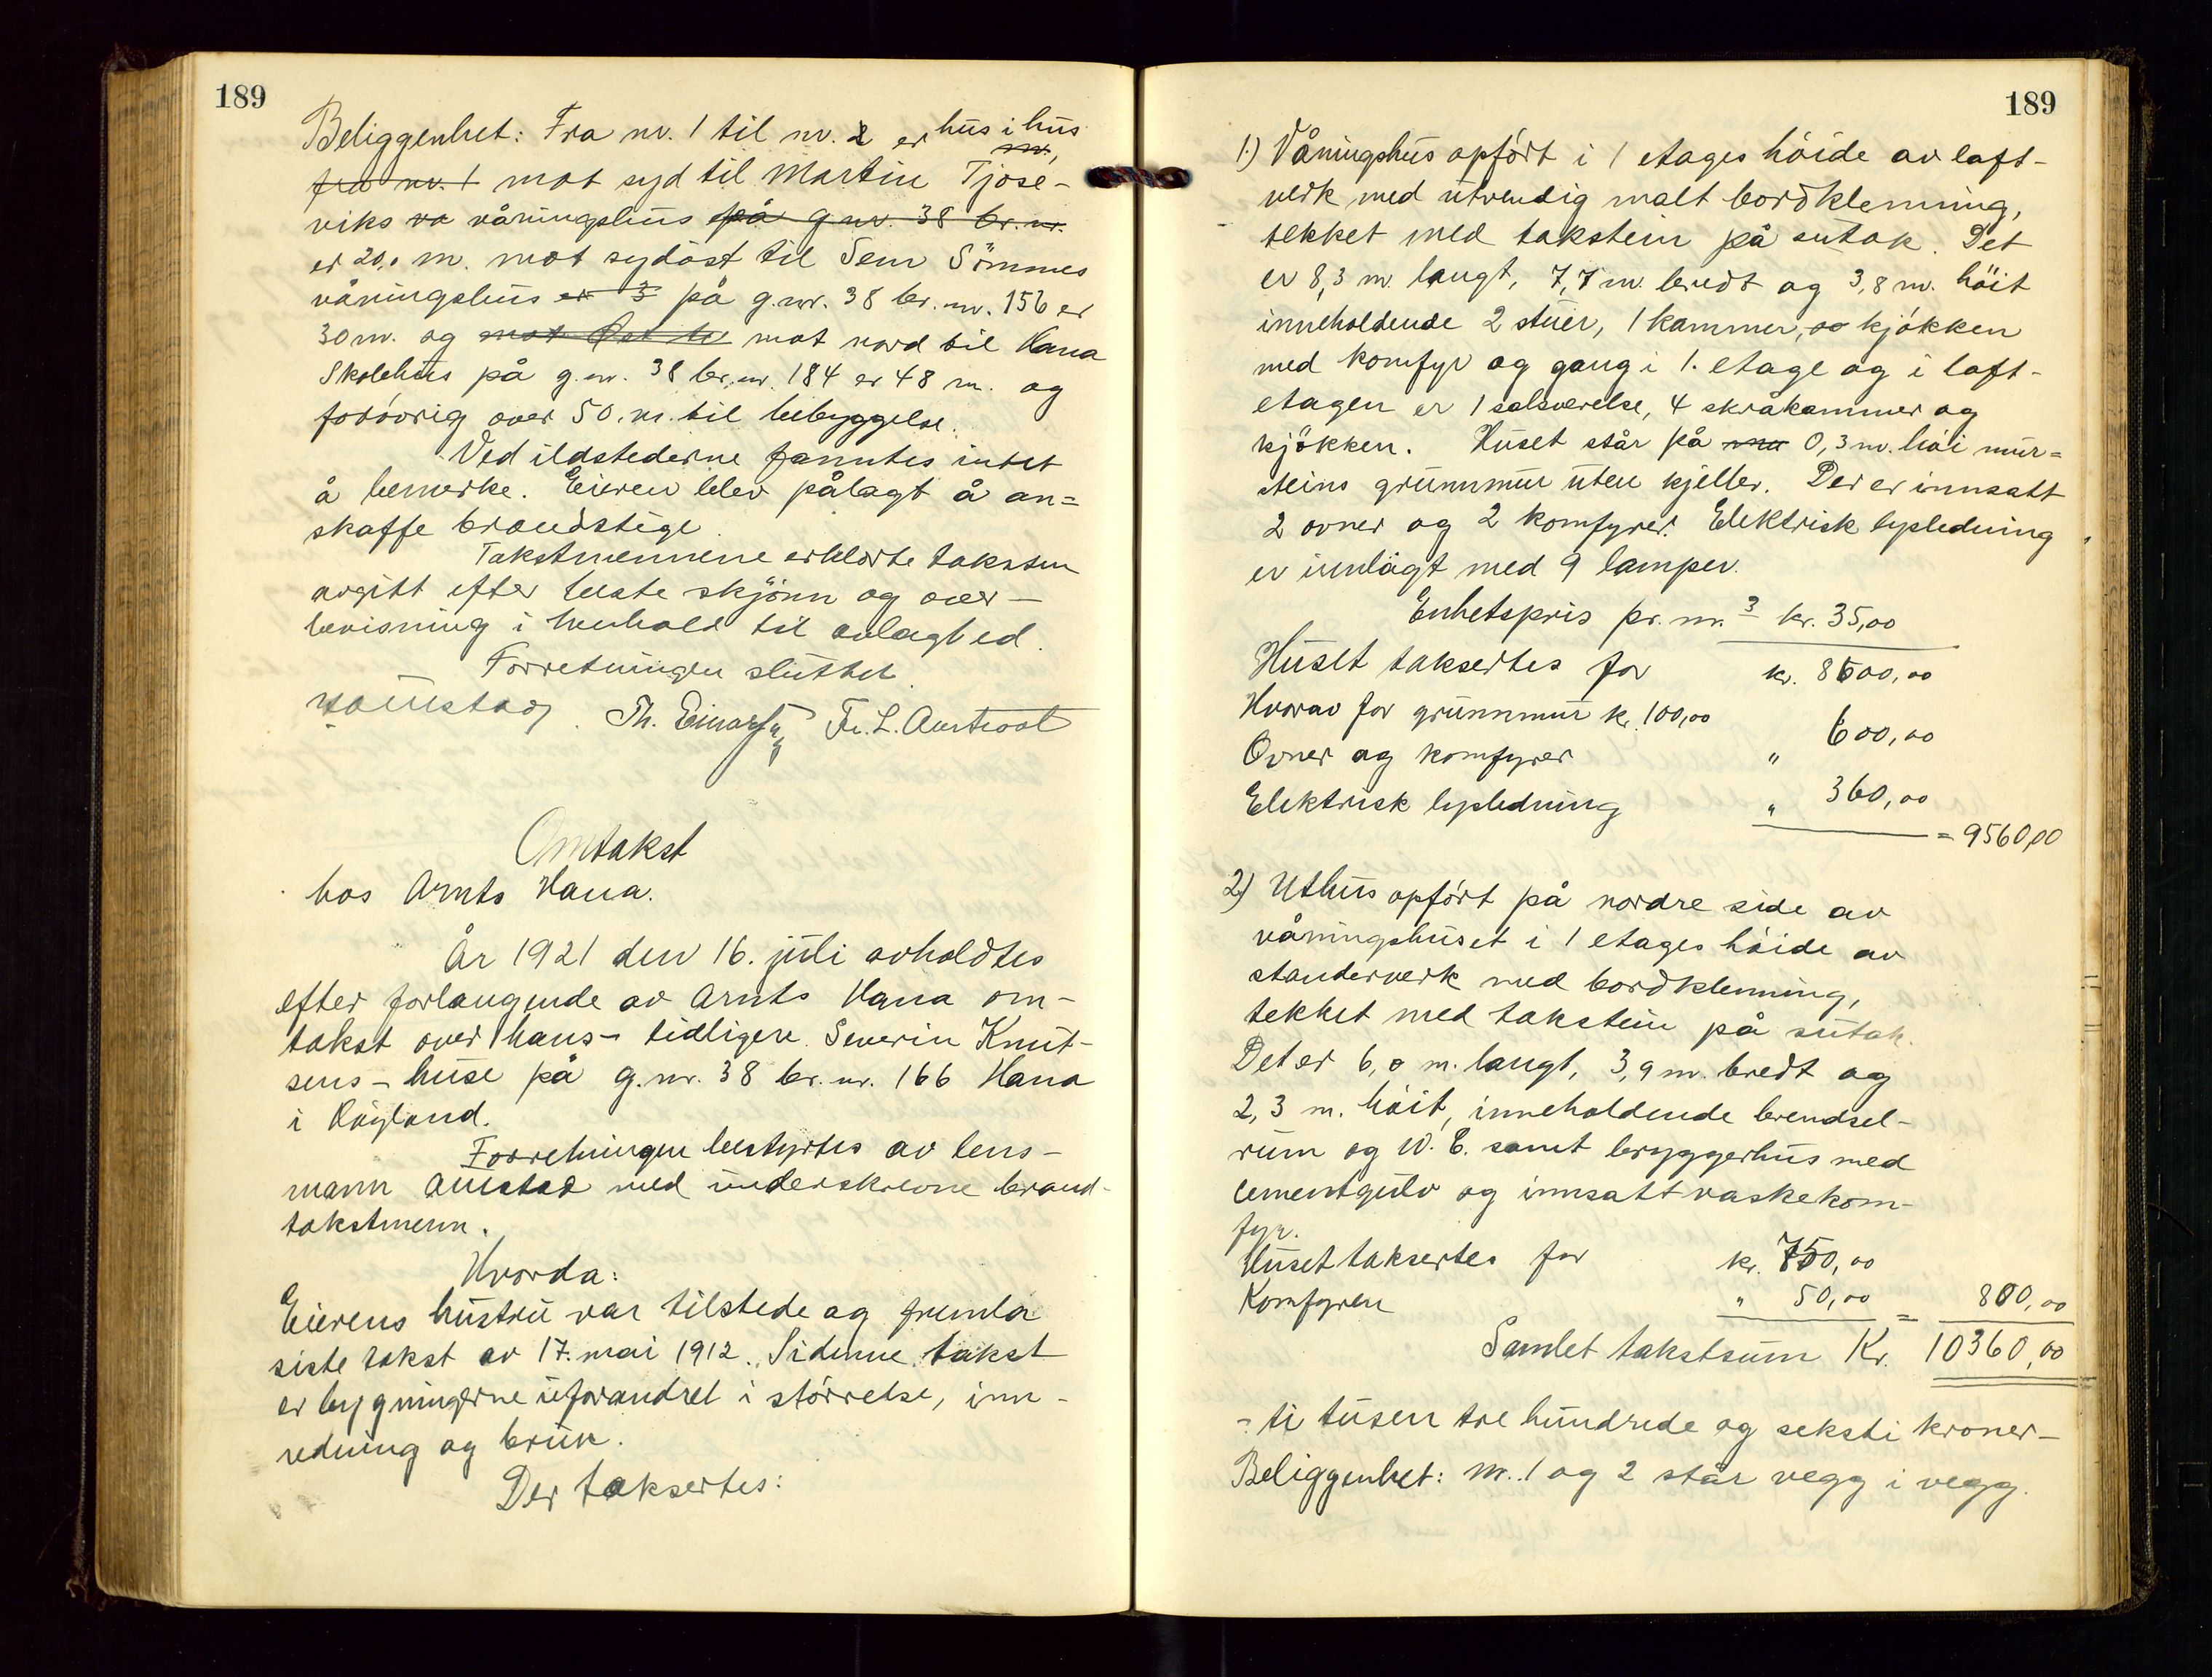 189
Beliggenhet: Fra nr. 1 til nr. 2 er hus i hus
fra nr. 1 mot syd til Martin Tjose-
viks va våningshus på g.nr. 38 br.nr.
er 20,0 m. mot sydöst til Sem Sömmes
våningshus er 3 på g.nr. 38 br.nr. 156 er
30 m. og mot nord til Hana
Skolehus på g.nr. 38 br.nr. 184 er 48 m. og
forövrig over 50 m. til bebyggelse.
Ved ildstederne fanntes intet
å bemerke. Eieren blev pålagt å an=
skaffe brandstige
Takstmennene erklærte taksten
avgitt efter beste skjönn og over-
bevisning i henhold til avlagt ed.
Forretningen sluttet.
Aaustad. Th. Einarsen Fr. L. Austvoll
Omtakst
hos Arnts Hana.
År 1921 den 16. juli avholdtes
efter forlangende av Arnts Hana om-
takst over hans - tidligere Severin Knut-
sens - huse på g.nr. 38 br.nr. 166 Hana
i Höyland.
Forretningen bestyrtes av lens-
mann Austad med underskrevne brand-
takstmenn.
Hvorda:
Eierens hustru var tilstede og fremla
siste takst av 17. mai 1912. Si denne takst
er bygningerne uforandret i störrelse, inn-
redning og bruk.
Der taksertes:
189
1.) Våningshus opfört i 1 etages höide av laft-
verk med utvendig malt bordklenning,
tekket med takstein på sutak. Det
er 8,3 m. langt, 7,7 m. bredt og 3,8 m. höit
inneholdende 2 stuer, 1 kammer, og kjökken
med komfyr og gang i 1. etage og i loft-
etagen er 1 salsværelse, 4 skråkammer og
kjökken. Huset står på 0,3 m. höi mur=
steins grunnmur uten kjeller. Der er innsatt
2 ovner og 2 komfyrer. Elektrisk lysledning
er innlagt med 9 lamper.
Enhetspris pr. m.3 kr. 35,00
Huset taksertes for kr. 8600,00
Hvorav for grunnmur kr. 100,00
Ovner og komfyrer " 600,00
Elektrisk lysledning " 360,00
= 9560,00
2) Uthus opfört på nordre side av
våningshuset i 1 etages höide av
standerverk med bordklenning,
tekket med takstein på sutak.
Det er 6,0 m. langt, 3,9 m. bredt og
2,3 m. höit, inneholdende brendsel-
rum og W.C. samt bryggerhus med
cementgulv og innsatt vaskekom-
fyr.
Huset taksertes for kr. 750,00
Komfyren " 50,00 = 800,00
Samlet takstsum Kr. 10360,00
- ti tusen tre hundrede og seksti kroner -
Beliggenhet: Nr. 1 og 2 står vegg i vegg.